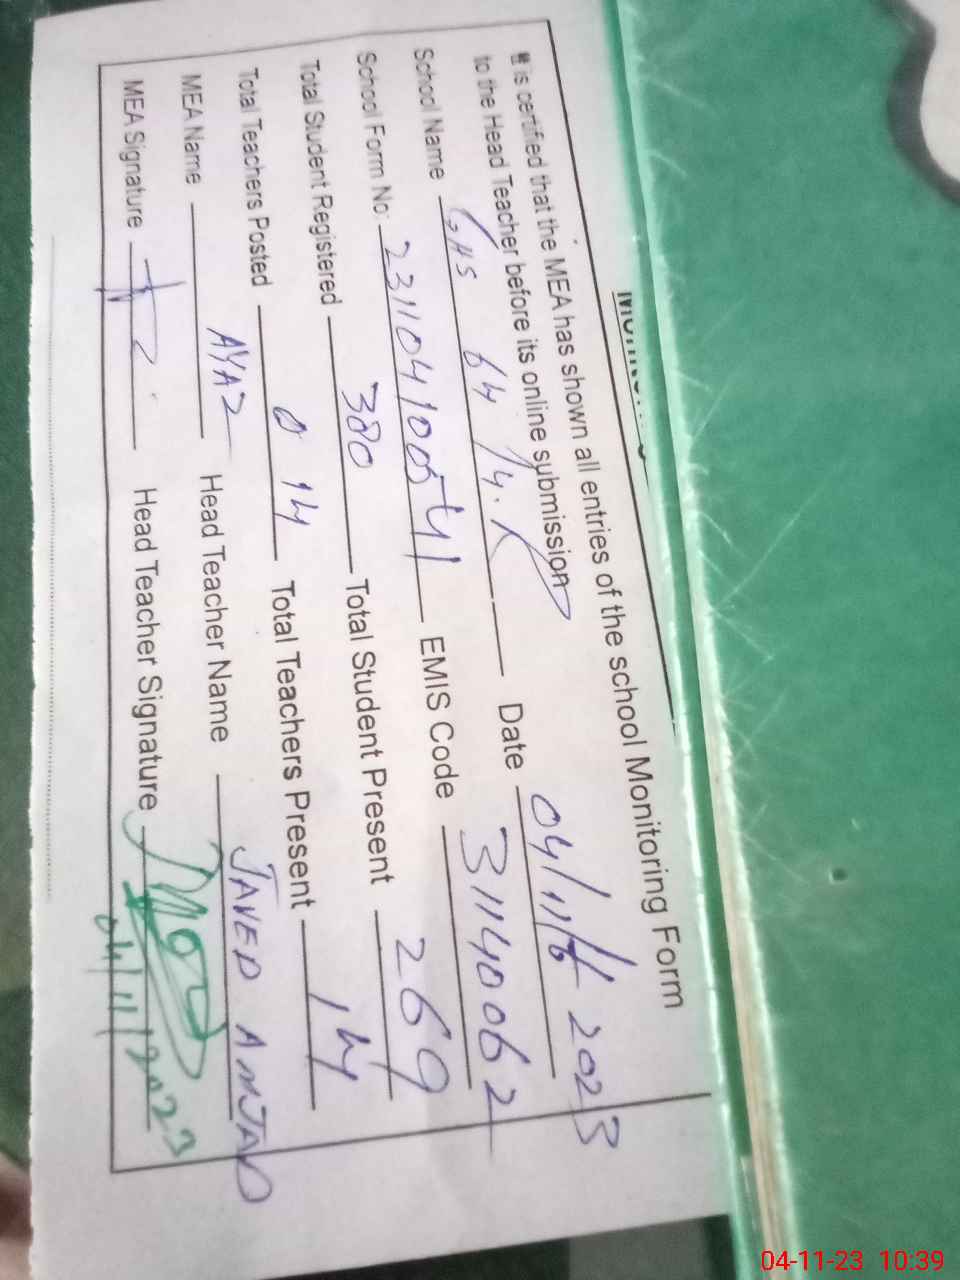 It is certified that the MEA has shown all entries of the school Monitoring Form
to the Head Teacher before its online submission
School Name GHS 64/4.R Date 04/11/2023
School Form No: 23110410 41 EMIS Code 31140062
Total Student Registered 380 Total Student Present 269
Total Teachers Posted 14 Total Teachers Present 14
MEA Name AYAZ Head Teacher Name JAVED AMJAD
MEA Signature Head Teacher Signature
04/11/2023
04-11-23 10:39